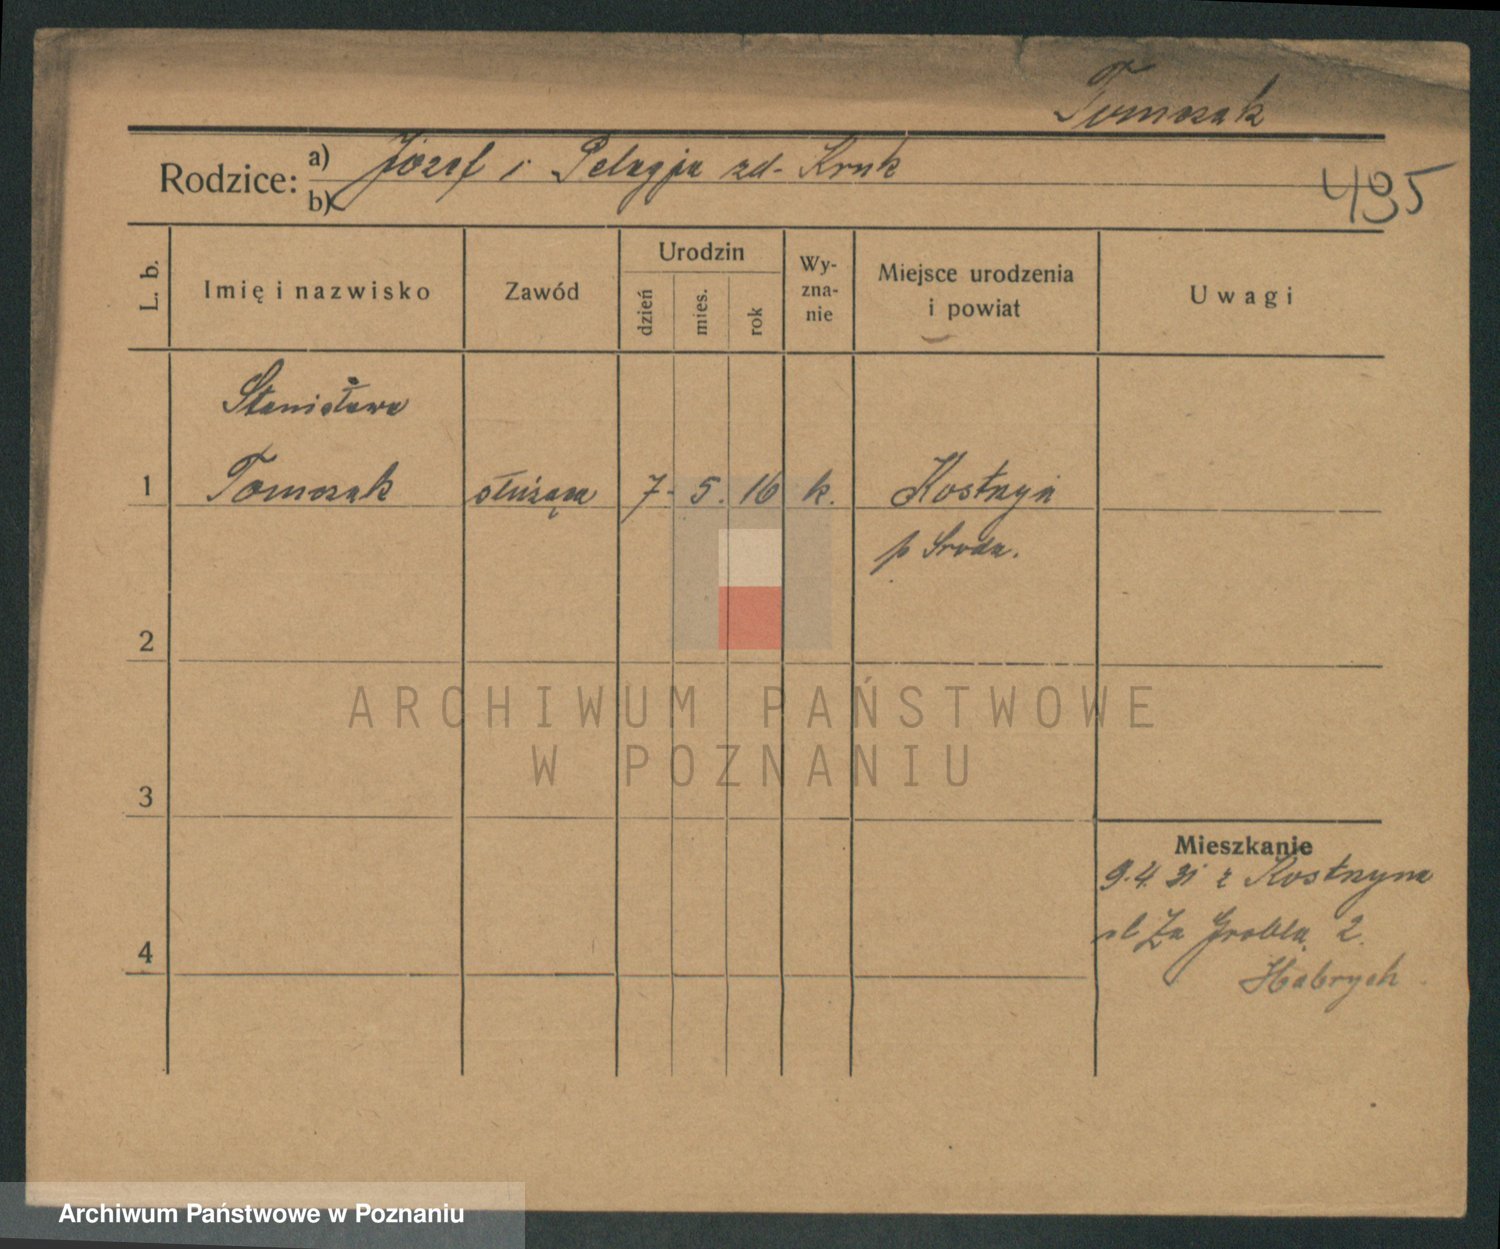 Tomczak
Rodzice: a) Józef i Pelagja zd. Kruk
b)
495
L. b.
Imię i nazwisko
Zawód
Urodzin
dzień
mies.
rok
Wy-
zna-
nie
Miejsce urodzenia
i powiat
Uwagi
Stanisława
1 Tomczak służąca 7. 5. 16 k. Kostrzyń
p Sroda.
2
ARCHIWUM PAŃSTWOWE
W POZNANIU
3
Mieszkanie
9.4.31 z Kostrzyna
ul Za Groblą 2.
4
Habrych
Archiwum Państwowe w Poznaniu